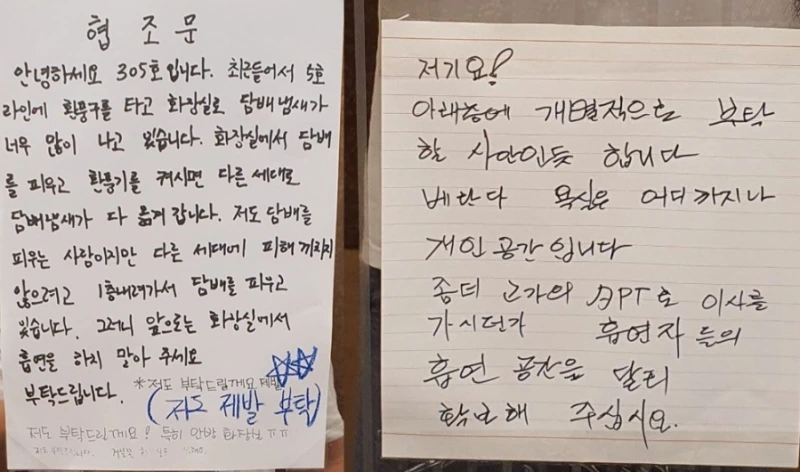 협조문
안녕하세요 305호입니다. 최근들어서 5호
라인에 환풍구를 타고 화장실로 담배냄새가
너무 많이 나고 있습니다. 화장실에서 담배
를 피우고 환풍기를 켜시면 다른세대로
담배냄새가 다 옮겨 갑니다. 저도 담배를
피우는 사람이지만 다른 세대에 피해 끼치지
않으려고 1층내려가서 담배를 피우고
있습니다. 그러니 앞으로는 화장실에서
흡연을 하지 말아 주세요
부탁드립니다.
*저도 부탁드릴께요 제발
(저도 제발 부탁)
저도 부탁드릴께요! 특히 안방 화장실 ㅠㅠ
저기요!
아래층에 개별적으로 부탁
할 사안인듯 합니다
베란다 욕실은 어디까지나
개인공간입니다
좀더 고가의 APT로 이사를
가시던가 흡연자들의
흡연 공간을 달리
확보해 주십시요.